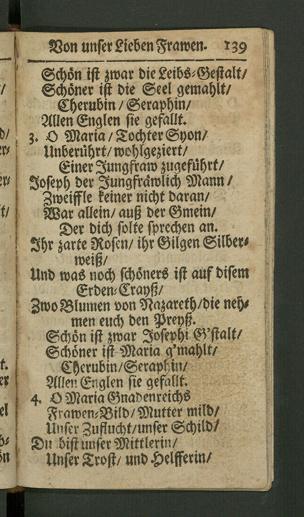 Von unser Lieben Frawen. 139
Schön ist zwar die Leibs-Gestalt/
Schöner ist die Seel gemahlt/
Cherubin/ Seraphin/
Allen Englen sie gefallt.
3. O Maria/ Tochter Syon/
Unberührt/ wohlgeziert/
Einer Jungfraw zugeführt/
Joseph der Jungfräwlich Mann/
Zweiffle keiner nicht daran/
War allein/ auß der Gmein/
Der dich solte sprechen an.
Ihr zarte Rosen/ ihr Gilgen Silber-
weiß/
Und was noch schöners ist auf disem
Erden-Crayß/
Zwo Blumen von Nazareth/ die neh-
men euch den Preyß.
Schön ist zwar Josephi G'stalt/
Schöner ist Maria g'mahlt/
Cherubin/ Seraphin/
Allen Englen sie gefallt.
4. O Maria Gnadenreichs
Frawen-Bild/ Mutter mild/
Unser Zuflucht/ unser Schild/
Du bist unser Mittlerin/
Unser Trost/ und Helfferin/